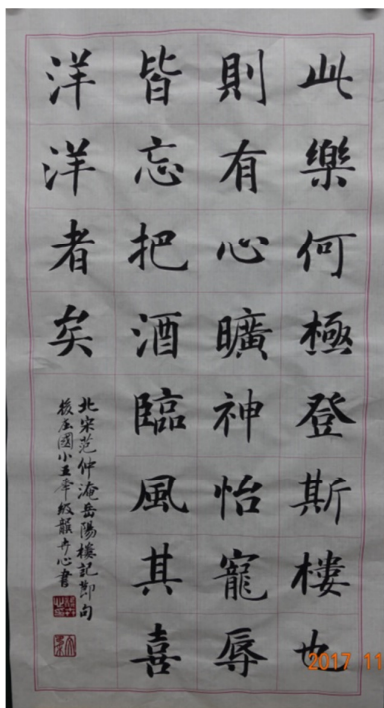 此樂何極登斯樓也
則有心曠神怡寵辱
皆忘把酒臨風其喜
洋洋者矣
北宋范仲淹岳陽樓記節句
後庄國小五年級龍卉心書
2017 11